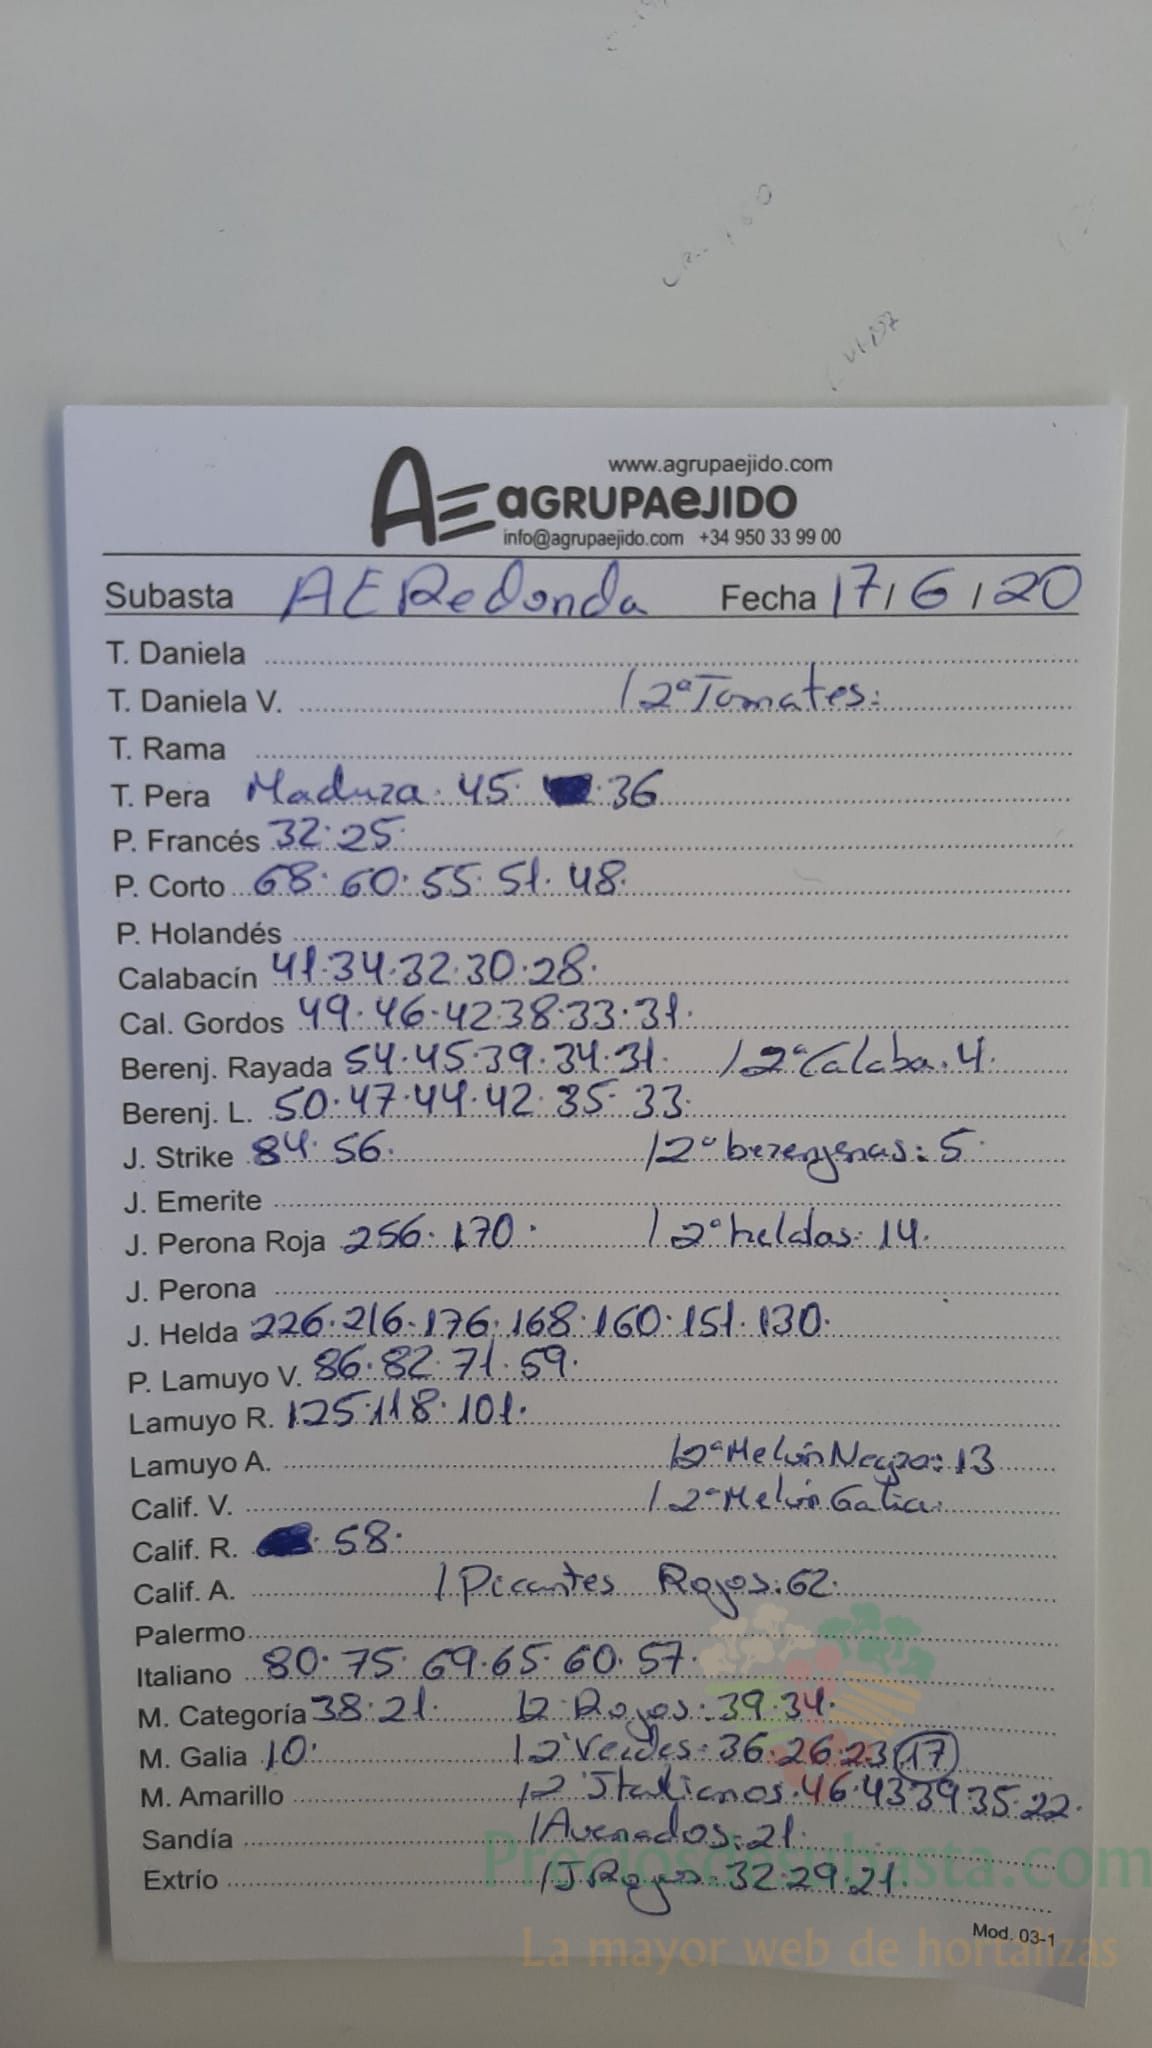 www.agrupaejido.com
AE aGRUPAeJIDO
info@agrupaejido.com +34 950 33 99 00
Subasta AE Redonda Fecha 17/6/20
T. Daniela
T. Daniela V. / 2ª Tomates:
T. Rama
T. Pera Madura. 45. 36
P. Francés 32.25.
P. Corto 68. 60. 55. 51. 48.
P. Holandés
Calabacín 41.34.32.30.28.
Cal. Gordos 49.46.42.38.33.31.
Berenj. Rayada 54.45.39.34.31. / 2ª Calaba. 4.
Berenj. L. 50.47.44.42.35.33.
J. Strike 84. 56. / 2ª berenjenas: 5.
J. Emerite
J. Perona Roja 256. 170. / 2ª heldas: 14.
J. Perona
J. Helda 226.216.176.168.160.151.130.
P. Lamuyo V. 86.82.71.59.
Lamuyo R. 125.118.101.
Lamuyo A. / 2ª Melón Negro: 13
Calif. V. / 2ª Melón Galia:
Calif. R. . 58.
Calif. A. / Picantes Rojos: 62.
Palermo
Italiano 80.75.69.65.60.57.
M. Categoría 38.21. / 2ª Rojos: 39.34.
M. Galia 10. / 2ª Verdes: 36.26.23 17
M. Amarillo / 2ª Italianos. 46.43 39 35.22.
Sandía / Asurcados: 21.
Extrío / J Rojos: 32.29.21.
Mod. 03-1
Preciosdesubasta.com
La mayor web de hortalizas